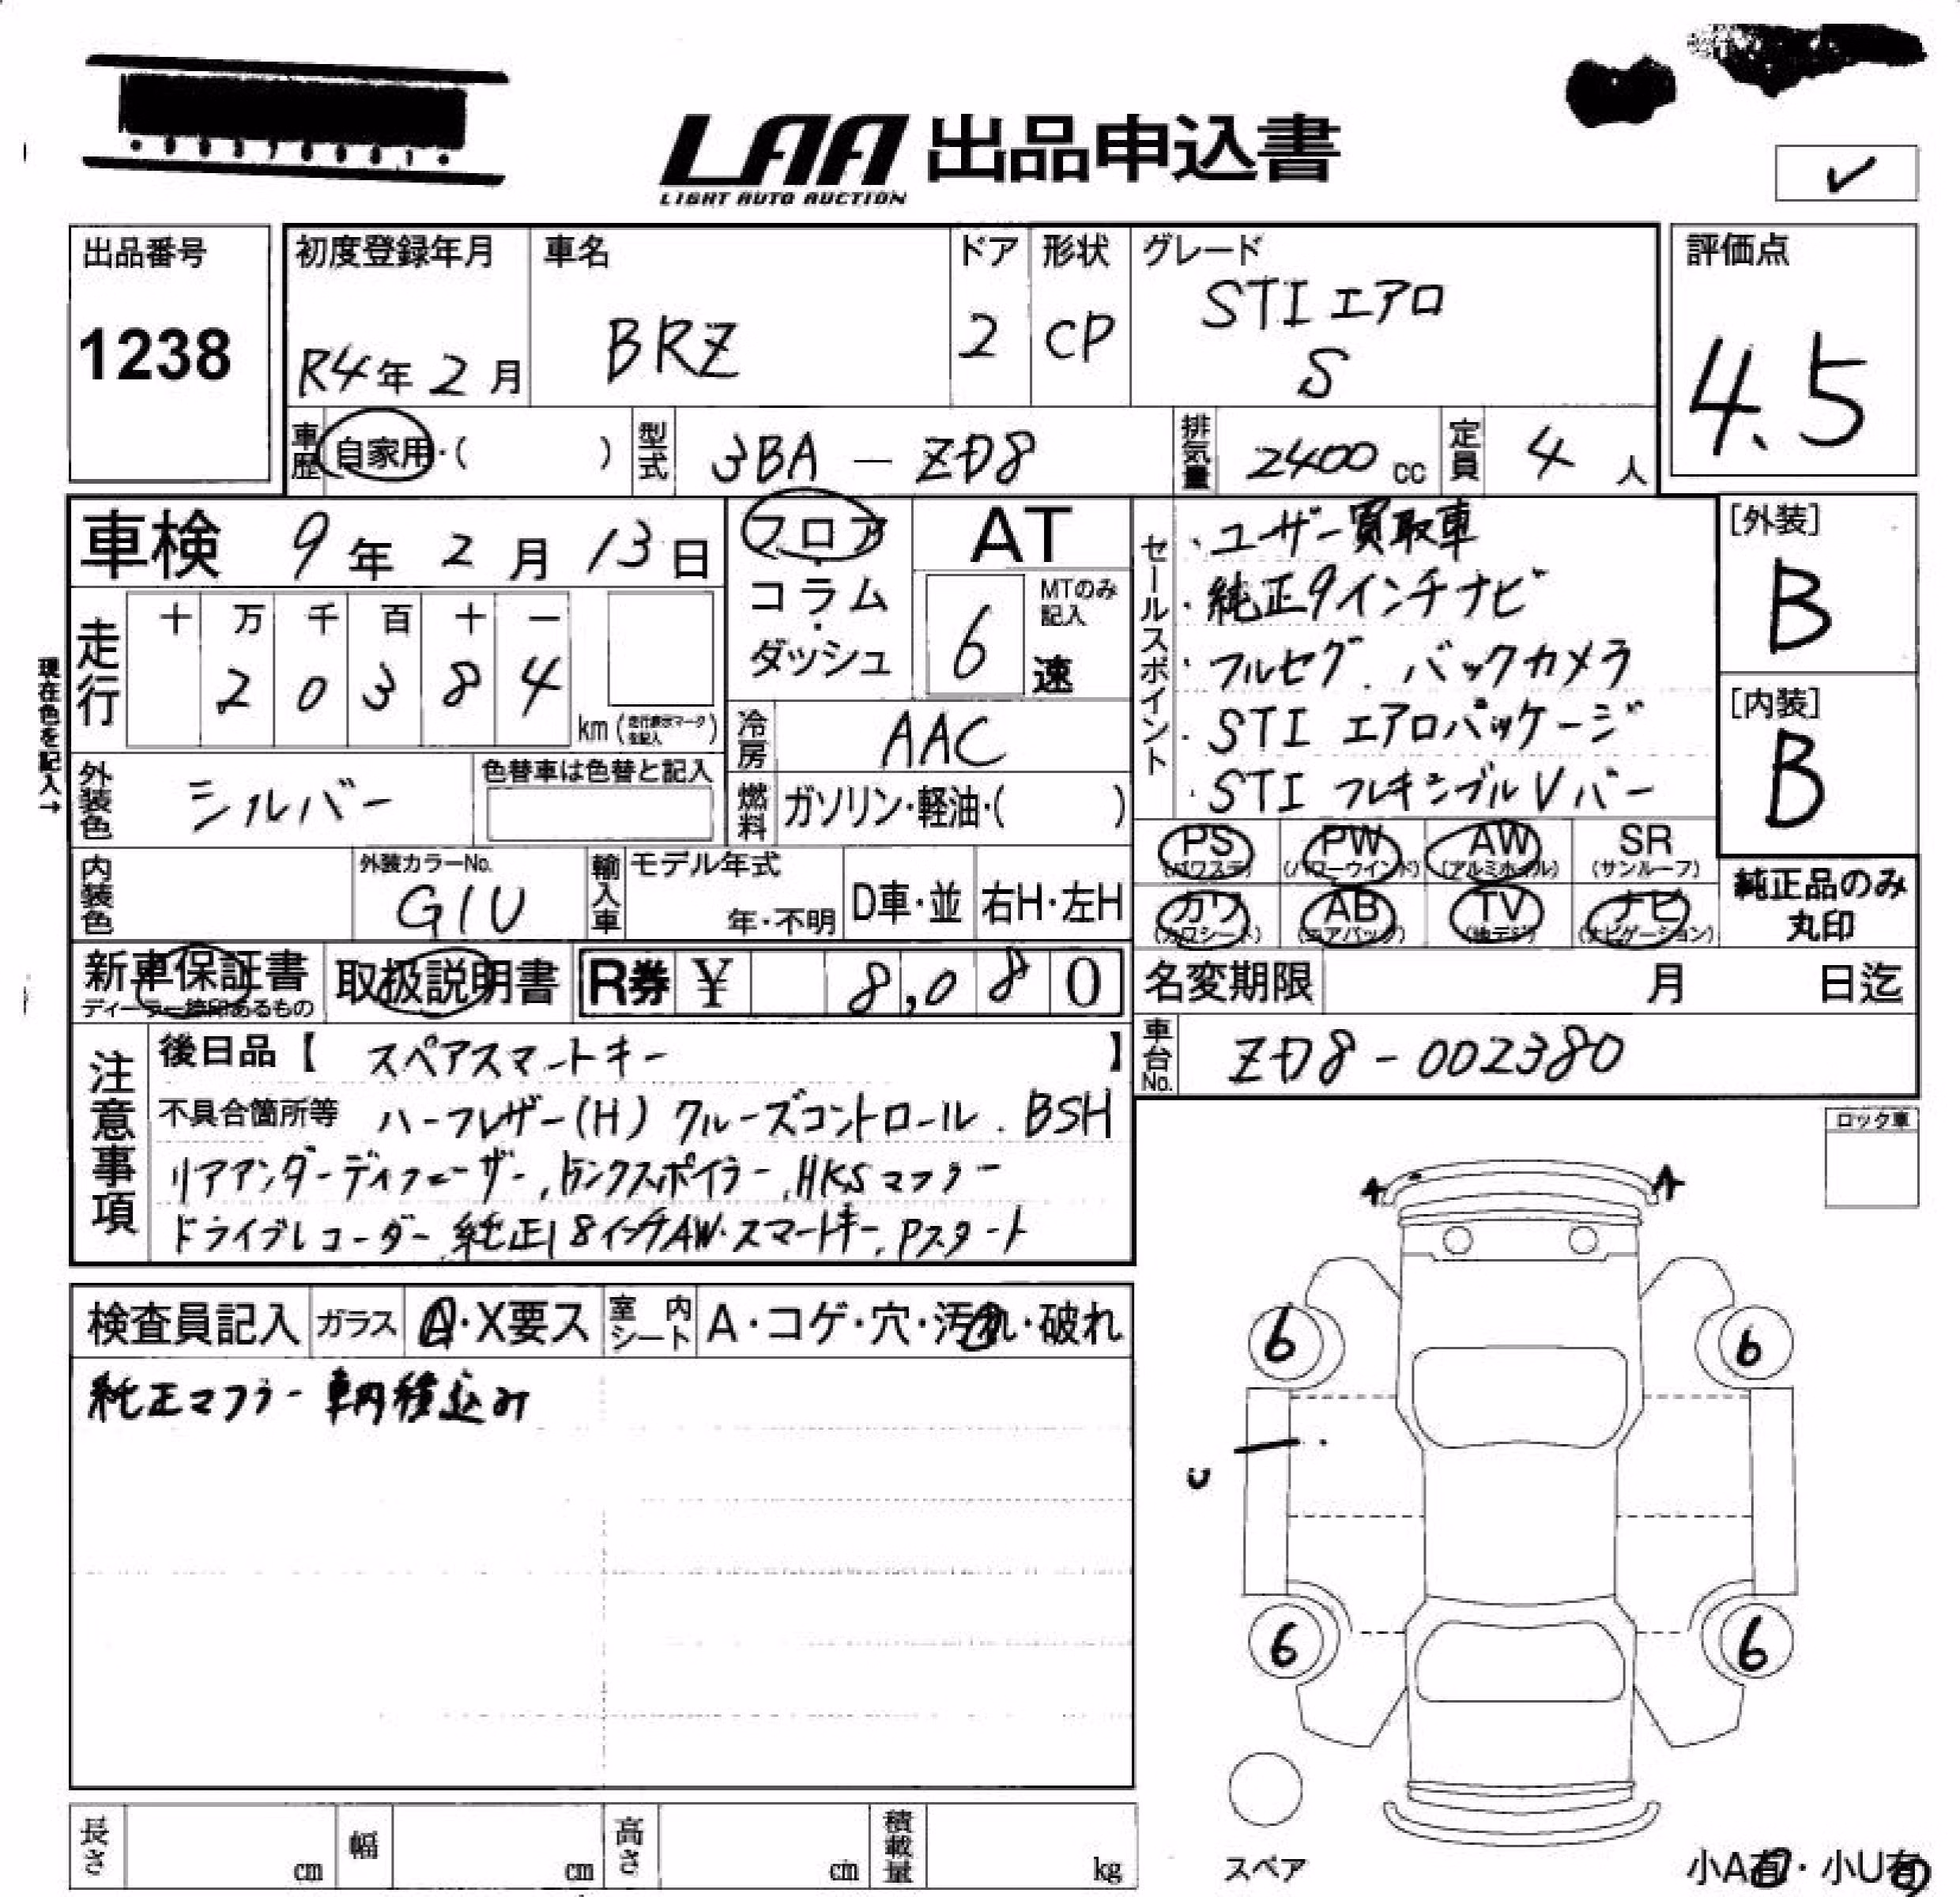 LAA 出品申込書
LIGHT AUTO AUCTION
✓
出品番号
1238
初度登録年月
R4年 2月
車名
BRZ
ドア
2
形状
CP
グレード
STI エアロ
S
評価点
4.5
車歴
自家用・( )
型式
3BA - ZD8
排気量
2400 cc
定員
4 人
車検 9年 2月 13日
フロア・
コラム・
ダッシュ
AT
6
MTのみ記入
速
走行
十 万 千 百 十 一
2 0 3 8 4
km (走行表示マーク 左記入)
現在色を記入→
外装色
シルバー
色替車は色替と記入
冷房
AAC
燃料
ガソリン・軽油・( )
内装色
外装カラーNo.
G1U
輸入車
モデル年式
年・不明
D車・並
右H・左H
セールスポイント
・ユーザー買取車
・純正9インチナビ
・フルセグ. バックカメラ
・STI エアロパッケージ
・STI フレキシブルVバー
[外装]
B
[内装]
B
PS
(パワステ)
PW
(パワーウインド)
AW
(アルミホイル)
SR
(サンルーフ)
カワ
(カワシート)
AB
(エアバック)
TV
(地デジ)
ナビ
(ナビゲーション)
純正品のみ
丸印
新車保証書
ディーラー捺印あるもの
取扱説明書
R券 ¥ 8,080
名変期限 月 日迄
車台No.
ZD8-002380
注意事項
後日品【 スペアスマートキー 】
不具合箇所等 ハーフレザー(H) クルーズコントロール. BSH
リアアンダーディフューザー, トランクスポイラー, HKSマフラー
ドライブレコーダー, 純正18インチAW・スマートキー, Pスタート
ロック車
検査員記入
ガラス
A・X要ス
室内シート
A・コゲ・穴・汚れ・破れ
純正マフラー 車内積込み
A
A
6
6
U
6
6
スペア
小A有・小U有
長さ
cm
幅
cm
高さ
cm
積載量
kg